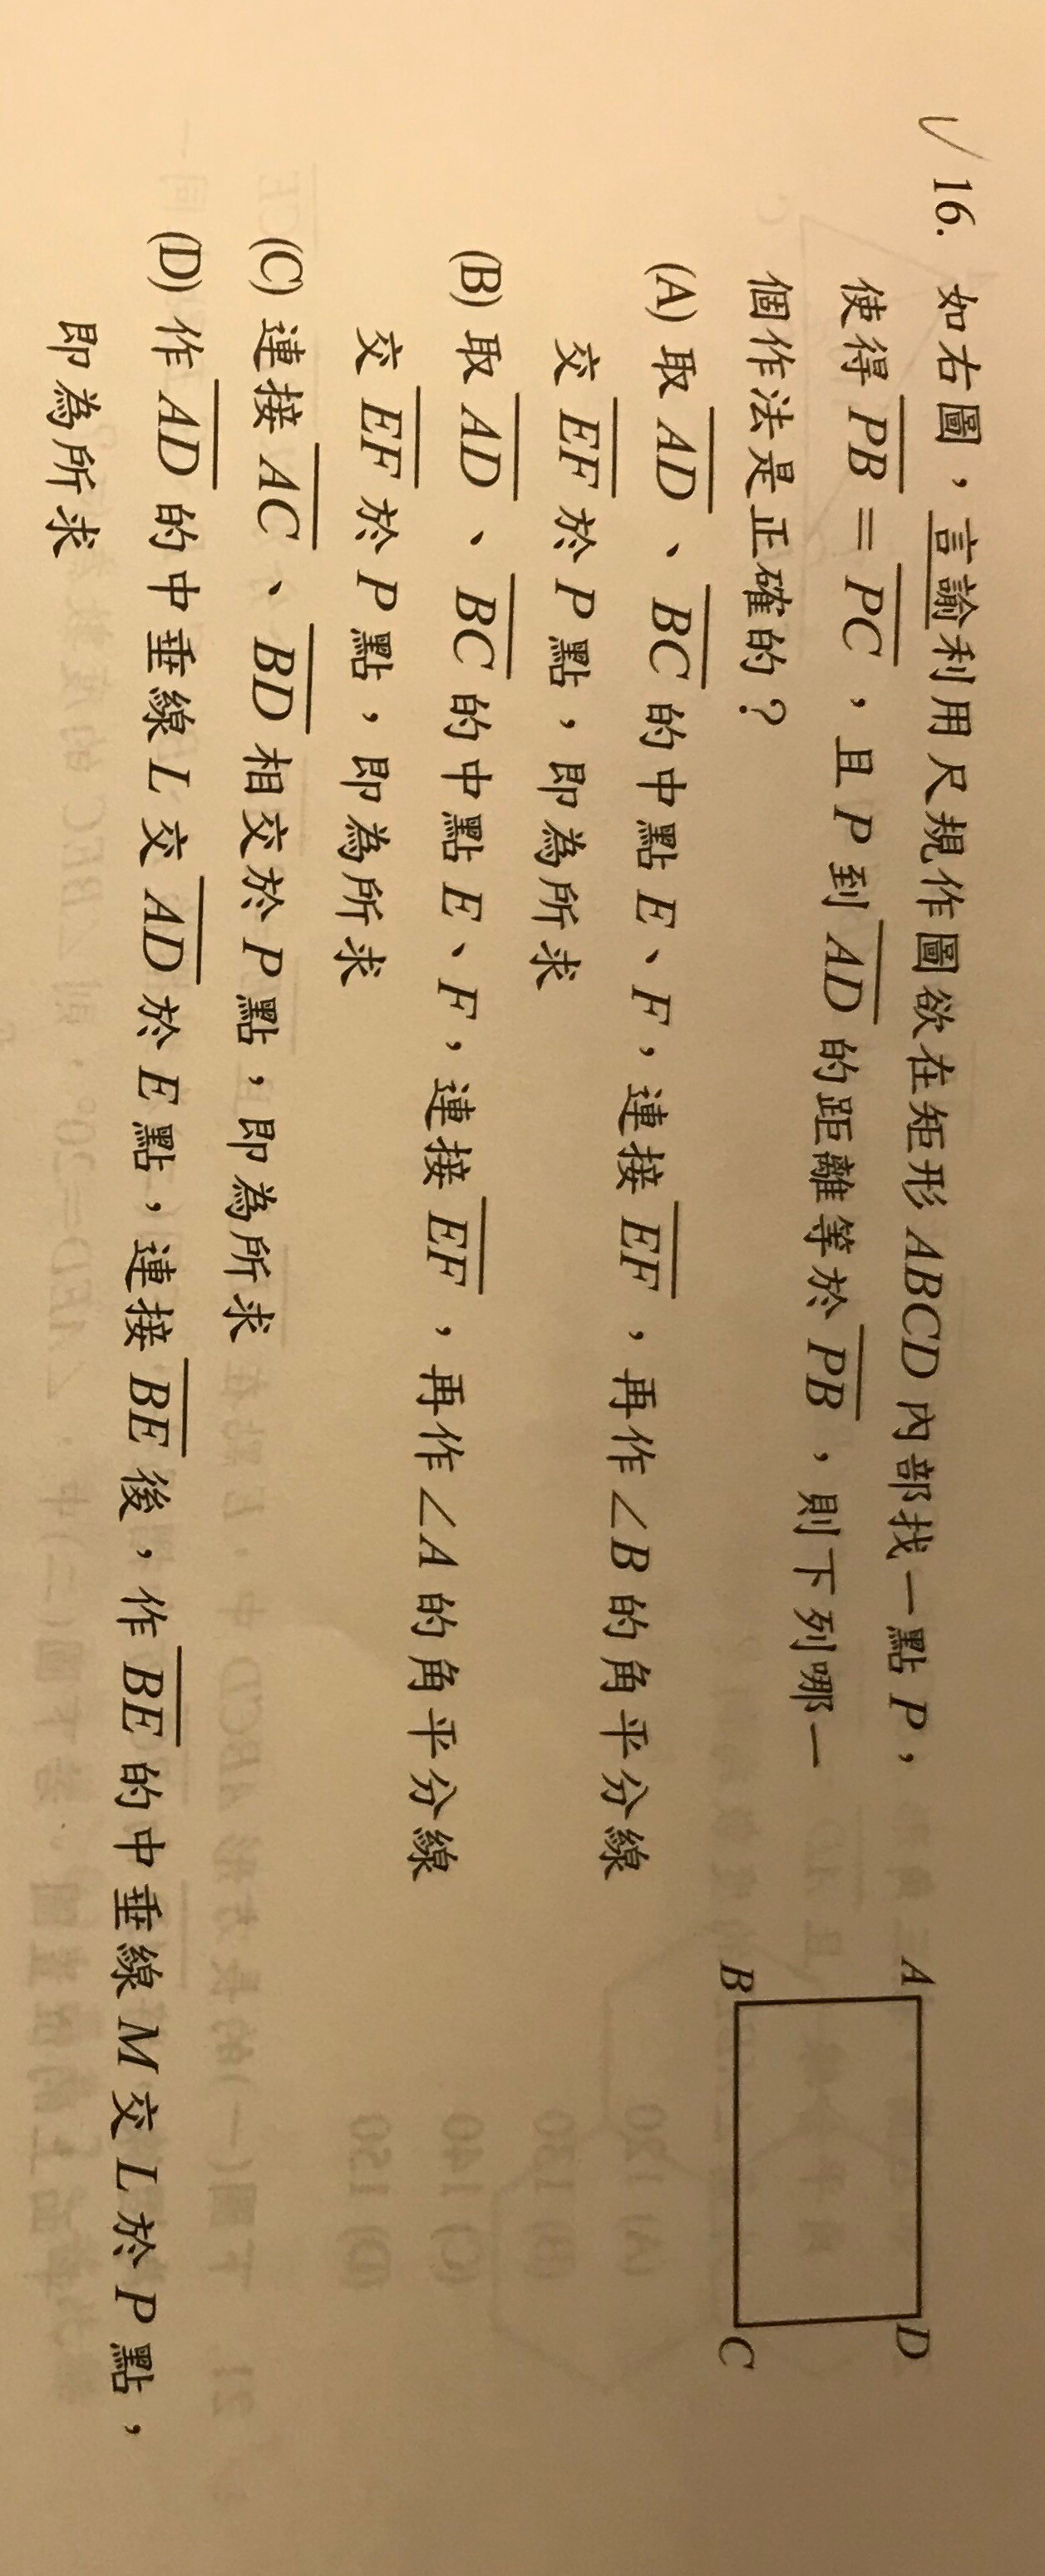 16. 如右圖，言諭利用尺規作圖欲在矩形 ABCD 內部找一點 P，
使得 PB = PC ，且 P 到 AD 的距離等於 PB ，則下列哪一
個作法是正確的？
A D
B C
(A) 取 AD 、 BC 的中點 E、F，連接 EF ，再作∠B 的角平分線
交 EF 於 P 點，即為所求
(B) 取 AD 、 BC 的中點 E、F，連接 EF ，再作∠A 的角平分線
交 EF 於 P 點，即為所求
(C) 連接 AC 、 BD 相交於 P 點，即為所求
(D) 作 AD 的中垂線 L 交 AD 於 E 點，連接 BE 後，作 BE 的中垂線 M 交 L 於 P 點，
即為所求